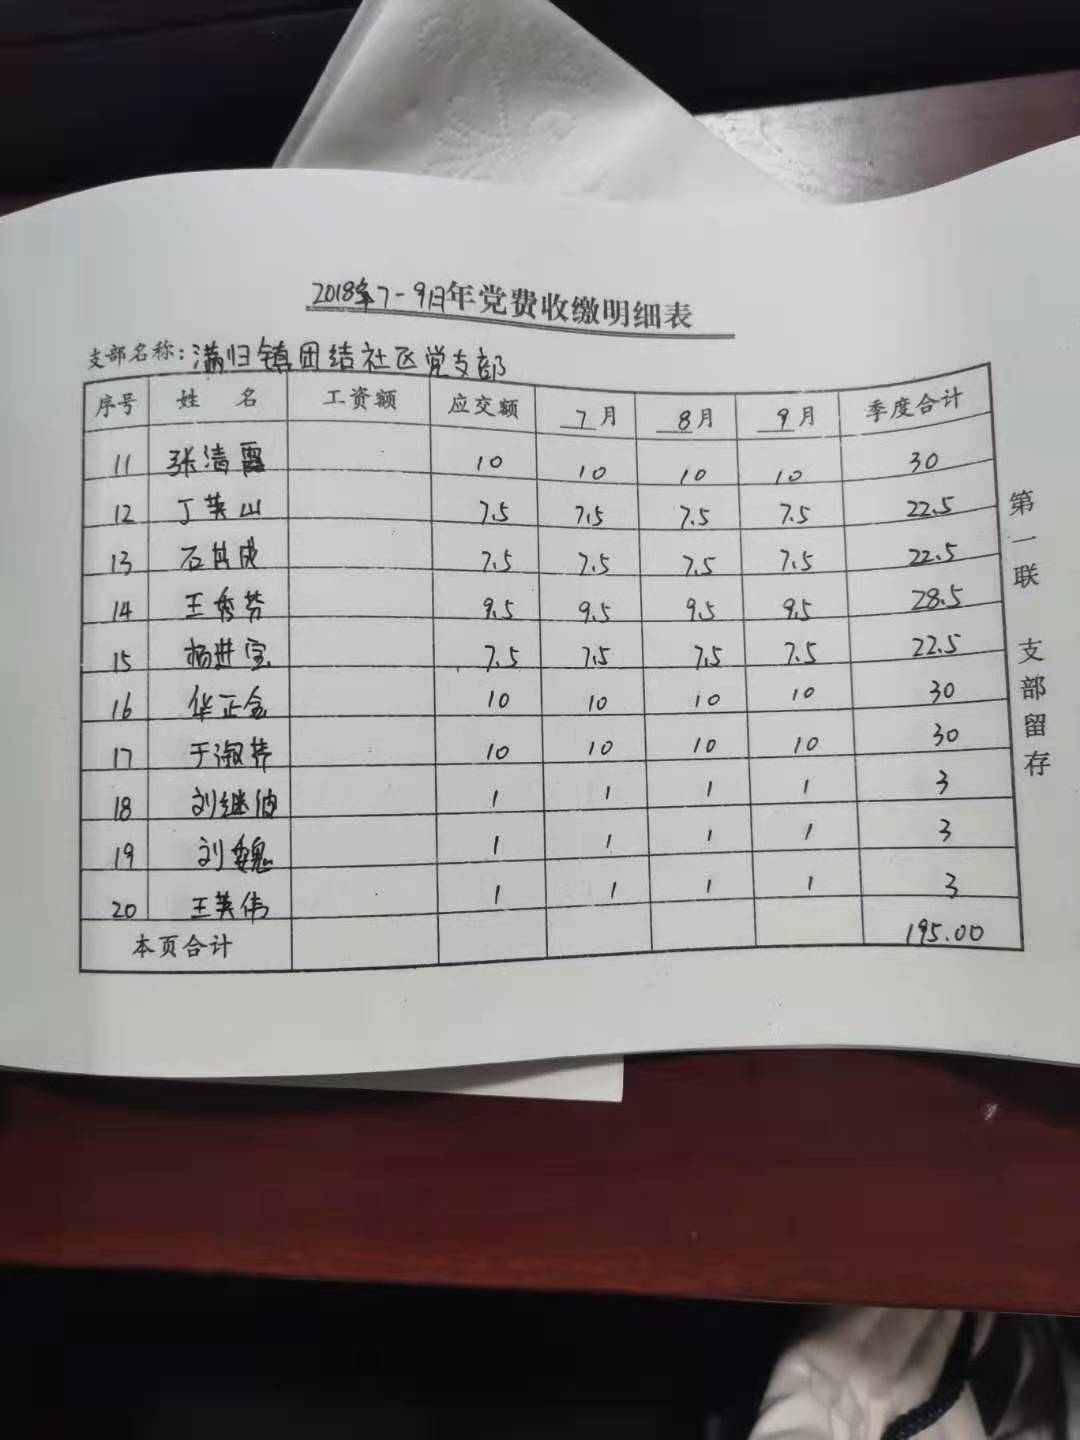 2018年7-9月年党费收缴明细表
支部名称：满归镇团结社区党支部
序号 姓名 工资额 应交额 7月 8月 9月 季度合计
11 张清霞 10 10 10 10 30
12 丁英山 7.5 7.5 7.5 7.5 22.5
13 石昌成 7.5 7.5 7.5 7.5 22.5
14 王秀芬 9.5 9.5 9.5 9.5 28.5
15 杨进宝 7.5 7.5 7.5 7.5 22.5
16 华正金 10 10 10 10 30
17 于淑萍 10 10 10 10 30
18 刘继波 1 1 1 1 3
19 刘魏 1 1 1 1 3
20 王英伟 1 1 1 1 3
本页合计 195.00
第一联 支部留存